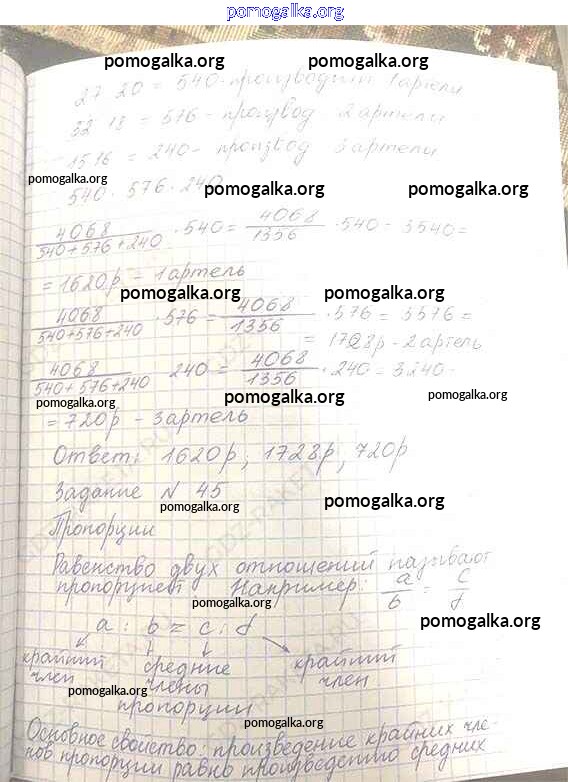 pomogalka.org
pomogalka.org pomogalka.org
27 · 20 = 540 - производит 1 артели
32 · 18 = 576 - производ 2 артели
15 · 16 = 240 - производ 3 артели
pomogalka.org
540 · 576 · 240
pomogalka.org pomogalka.org
4068 / 540+576+240 · 540 = 4068 / 1356 · 540 = 3540 =
= 1620р - 1 артель
pomogalka.org pomogalka.org
4068 / 540+576+240 · 576 = 4068 / 1356 · 576 = 3576 =
= 1728р - 2 артель
4068 / 540+576+240 240 = 4068 / 1356 · 240 = 3240 -
pomogalka.org pomogalka.org pomogalka.org
= 720р - 3 артель
Ответ: 1620р, 1728р, 720р
Задание N 45
pomogalka.org pomogalka.org
Пропорции
Равенство двух отношений называют
пропорцией Например: a/b = c/d
pomogalka.org
a : b = c : d
pomogalka.org
крайний член средние члены пропорции крайний член
pomogalka.org
pomogalka.org
Основное свойство: произведение крайних чле-
нов пропорции равно произведению средних